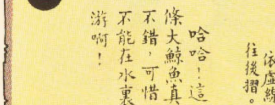 依虛線
往後摺。
哈哈！這
條大鯨魚真
不錯，可惜
不能在水裏
游啊！